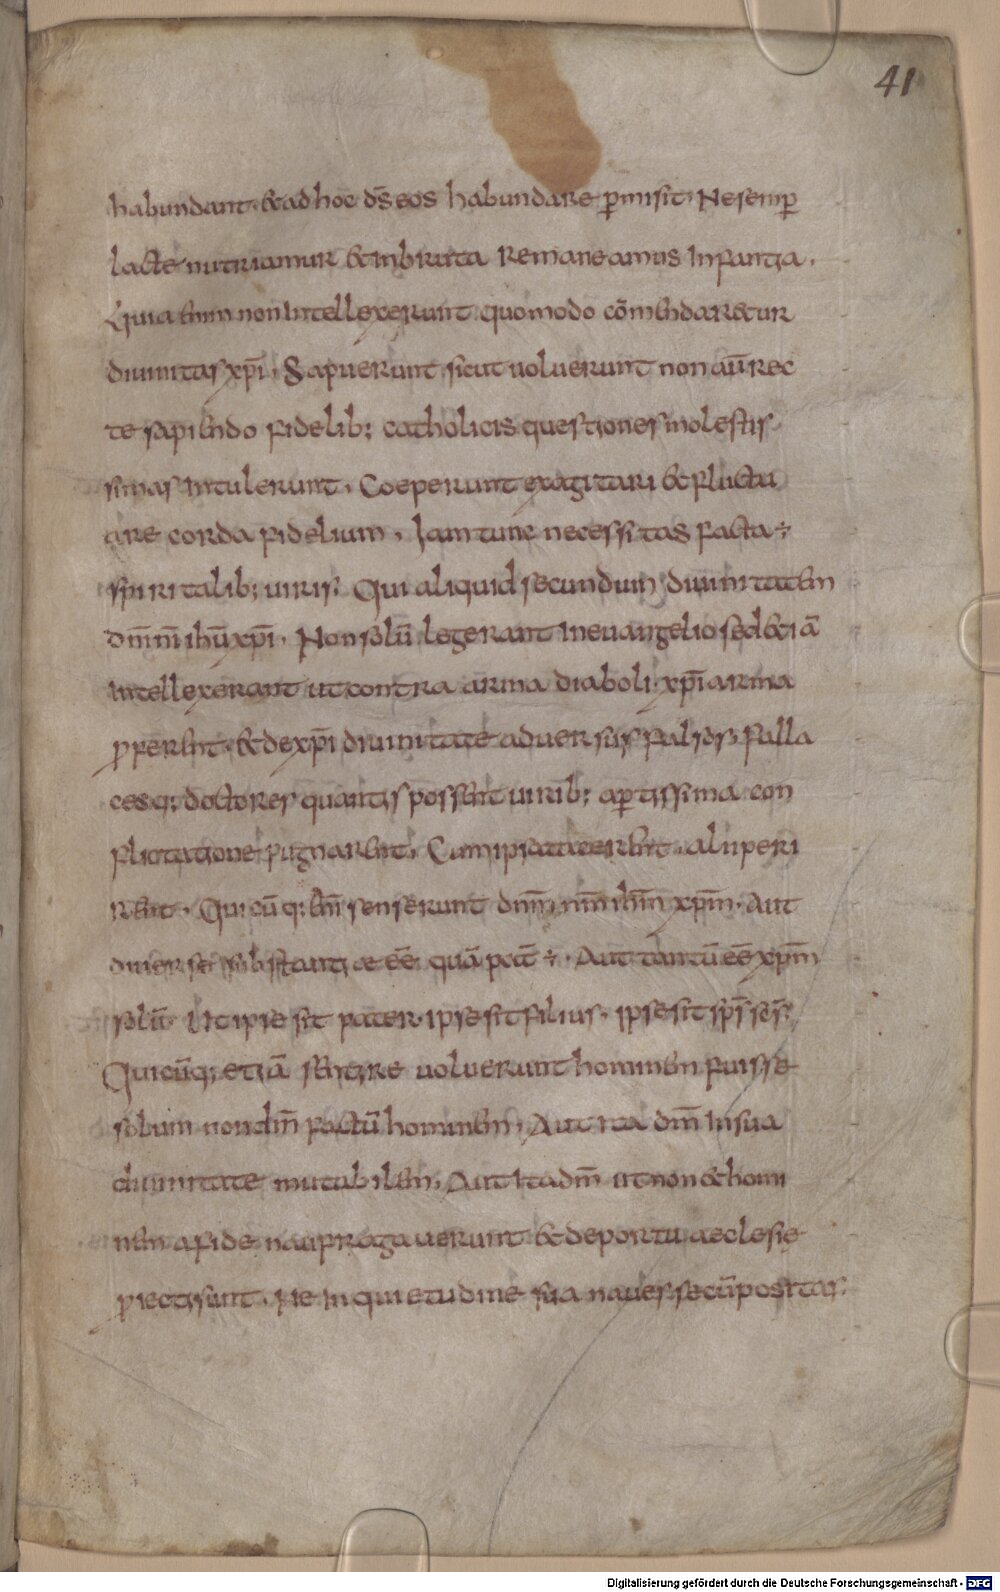 41
habundant. &ad hoc d̄s eos habundare p̄misit. Ne semp̄
lacte nutriamur & in bruta Remaneamus Infantia.
Quia enim non Intellexerunt quomodo cōmendar&ur
diuinitas xp̄i. Sapuerunt sicut uoluerunt non aū rec
te sapiendo fidelib; catholicis questiones molestis
simas Intulerunt. Coeperunt exagitari & fluctu
are corda fidelium. Iam tunc necessitas facta ÷
sp̄iritalib; uiris. Qui aliquid secundum diuinitatem
dn̄i nr̄i ihū xp̄i. Non solū legerant In euangelio sed &iā
Intellexerant ut contra arma diaboli xp̄i arma
proferrent. & de xp̄i diuinitate aduersus falsos. falla
cesq; doctores quantis possent uirib; ap̄tissima con
flictatione pugnarent. Cum ipsi tacerent. alii peri
rent. Qui cū q; enī senserunt dn̄m nr̄m ihm̄ xp̄m. Aut
diuerse substantiae eē quā pat̄ ÷. Aut tantū eē xp̄m
solū. Ut ipse sit pater. ipse sit filius. ipse sit sp̄s sc̄s.
Quicūq; etiā sentire uoluerunt hominem fuisse
solum non dm̄ factū hominem. Aut ita dm̄ In sua
diuinitate mutabilem. Aut Ita dm̄ ut non & homi
nem a fide naufragauerunt & de portu aeclesie
proiecti sunt. Ne Inquietudine sua naues secū positas.
Digitalisierung gefördert durch die Deutsche Forschungsgemeinschaft - DFG